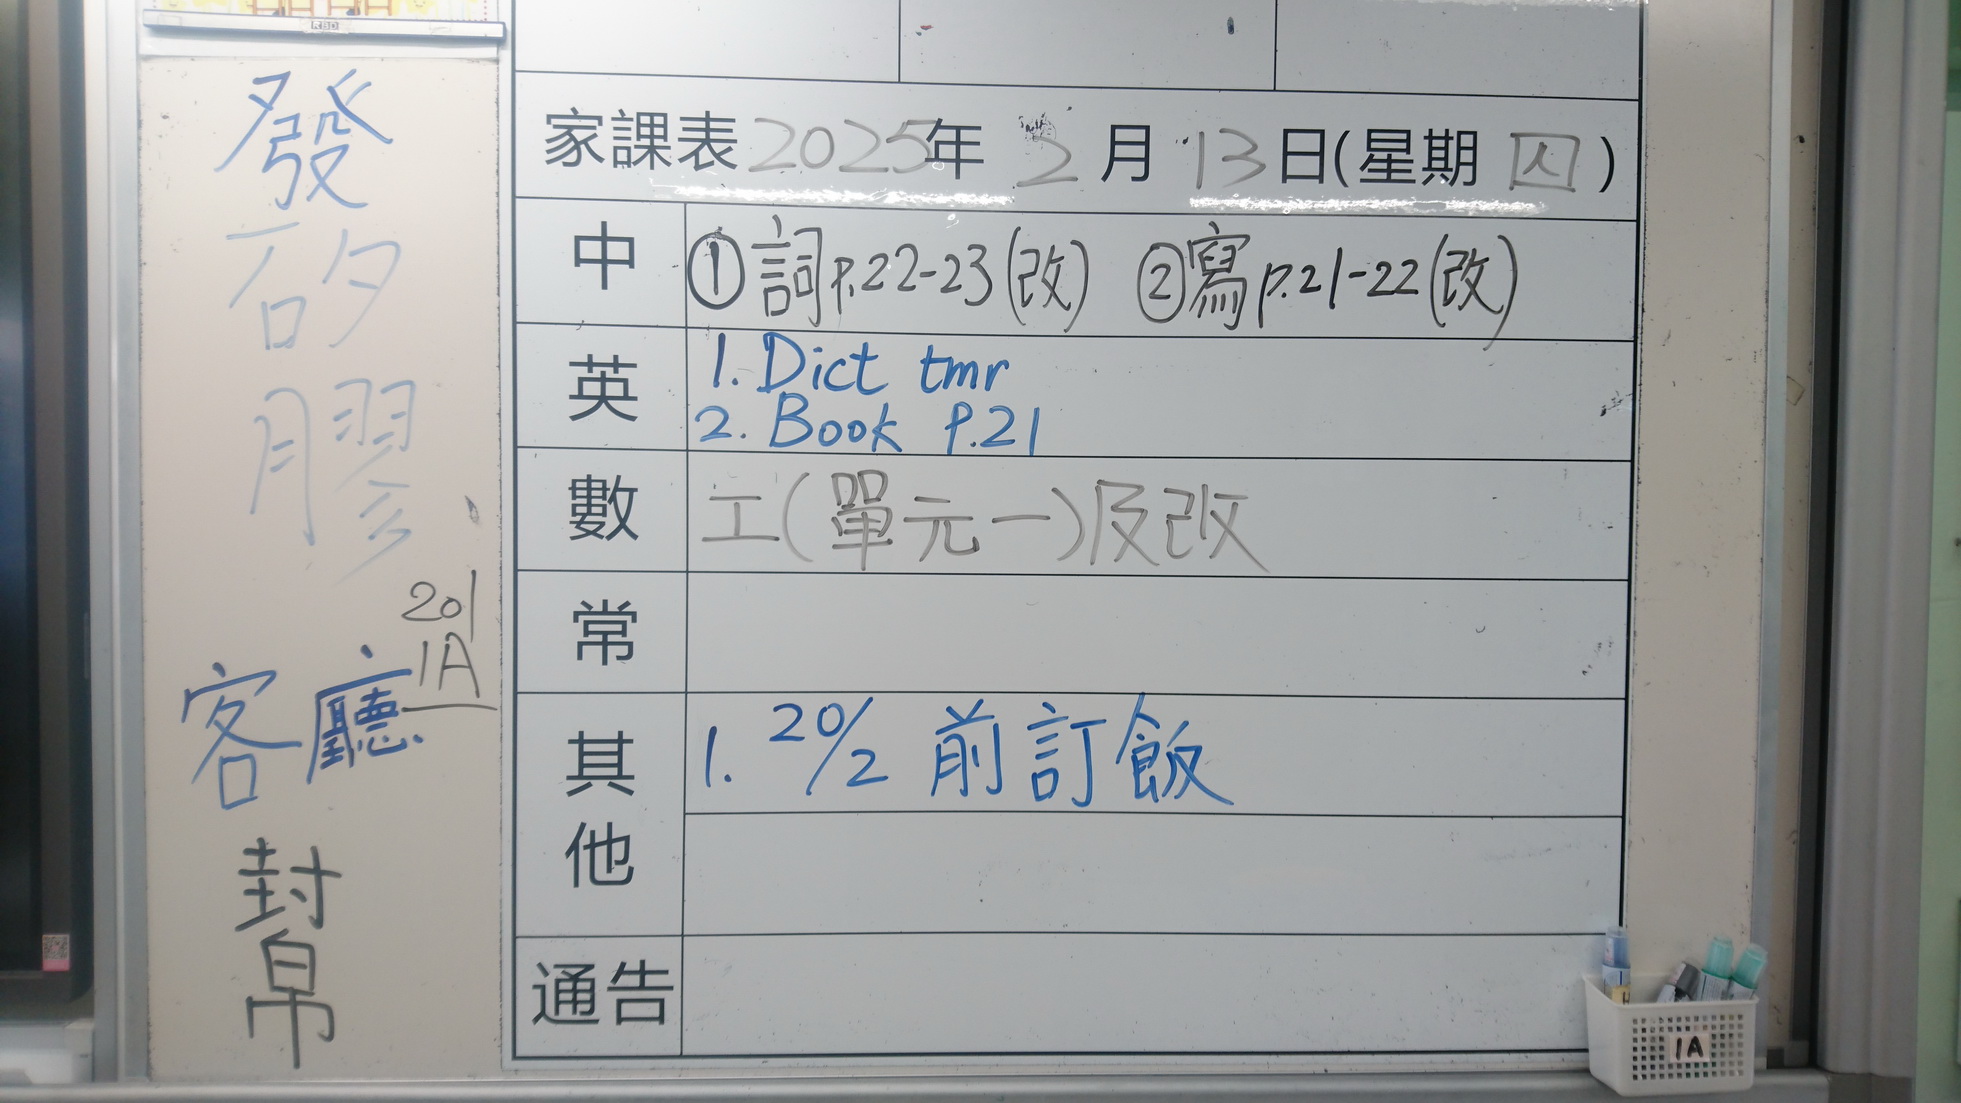 RBD
發
矽
膠
201
1A
客廳
封
帛
家課表2025年2月13日(星期囚)
中
①詞p.22-23(改) ②寫p.21-22(改)
英
1. Dict tmr
2. Book P.21
數
工(單元一)及改
常
其他
1. 20/2 前訂飯
通告
1A